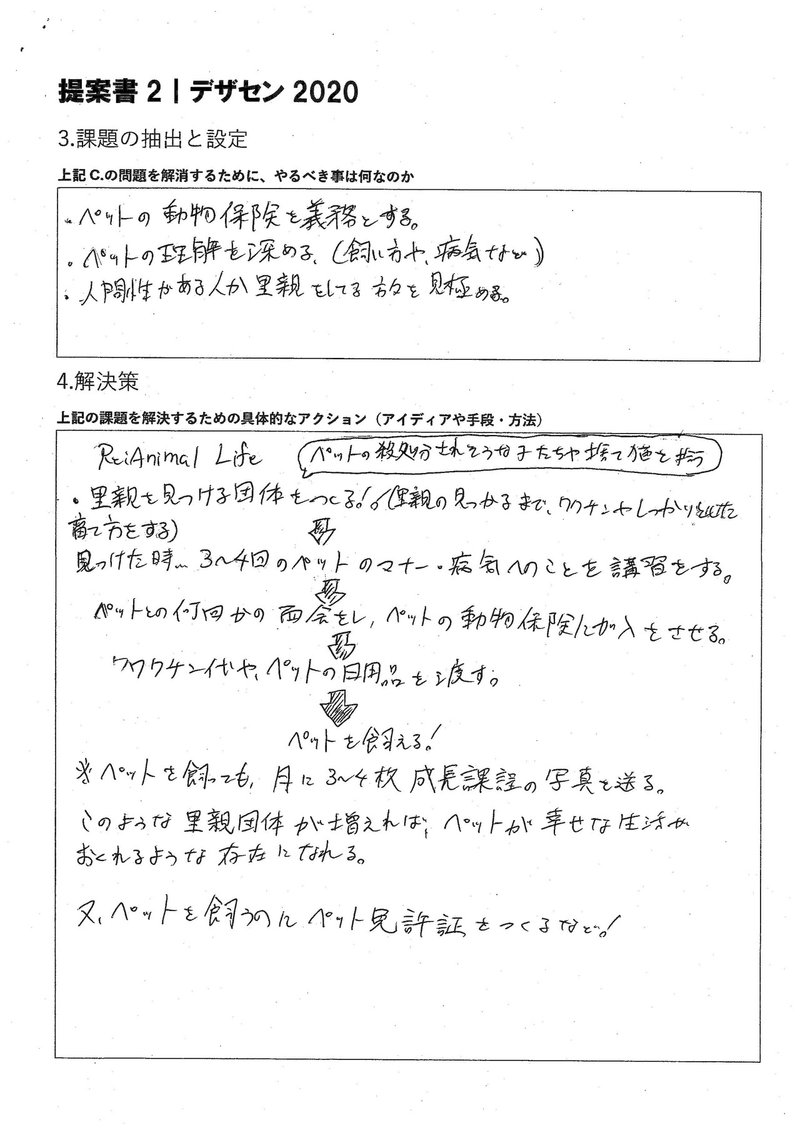 提案書 2 | デザセン 2020
3.課題の抽出と設定
上記 C.の問題を解消するために、やるべき事は何なのか
・ペットの動物保険を義務とする。
・ペットの理解を深める、(飼い方や、病気など)
・人間性がある人か里親をしてる方々を見極める。
4.解決策
上記の課題を解決するための具体的なアクション（アイディアや手段・方法）
ReiAnimal Life
ペットの殺処分されそうな子たちや捨て猫を拾う
・里親を見つける団体をつくる!。(里親の見つかるまで、ワクチンやしっかり
育て方をする)
見つけた時… 3〜4回のペットのマナー・病気へのことを講習をする。
ペットとの何回かの面会をし、ペットの動物保険に加入をさせる。
ワクワクチン代や、ペットの日用品を渡す。
ペットを飼える!
※ペットを飼っても、月に3〜4枚成長課程の写真を送る。
このような里親団体が増えれば、ペットが幸せな生活が
おくれるような存在になれる。
又、ペットを飼うのにペット免許証をつくるなど!